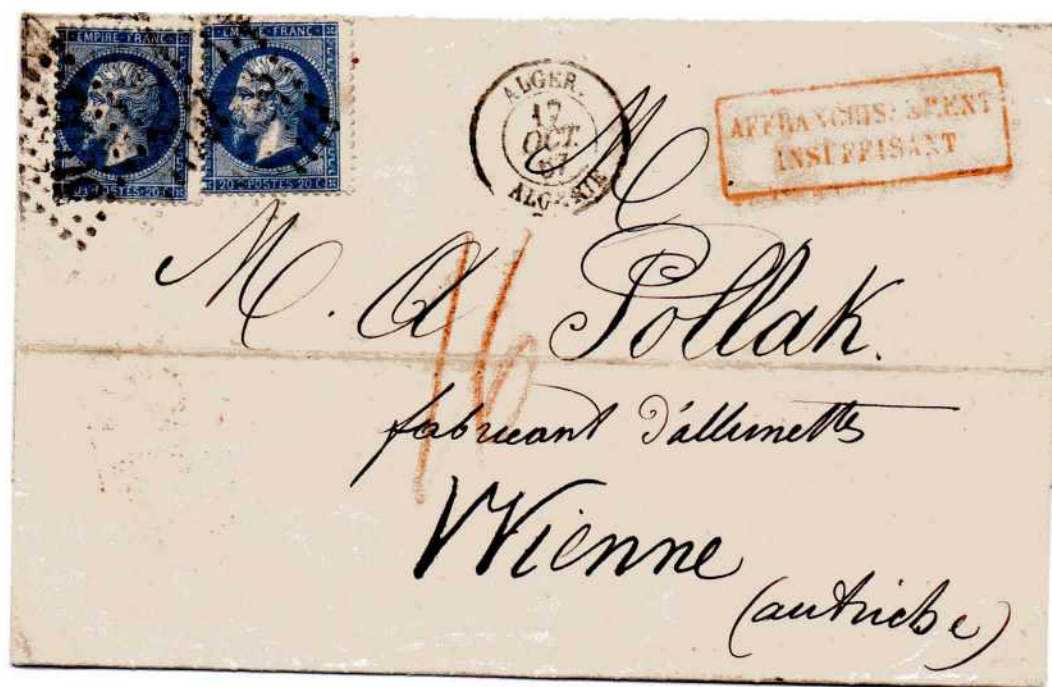 EMPIRE FRANC
EMPIRE FRANC
POSTES 20 C
20 C POSTES 20 C
ALGER.
17
OCT.
67
ALGERIE
AFFRANCHISSEMENT
INSUFFISANT
16
M. A Pollak.
fabricant d'allumettes
Wienne
(autriche)